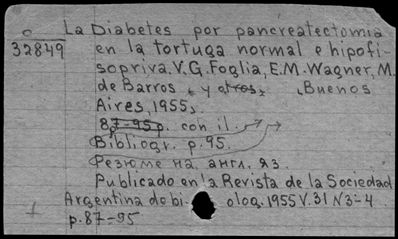 o La Diabetes por pancreatectomia
32849 en la tortuga normal e hipofi-
sopriva. V.G. Foglia, E.M. Wagner, M.
de Barros y otros. Buenos
Aires, 1955,
87-95 p. con il.
Bibliogr. p. 95.
Резюме на англ. яз.
Publicado en la Revista de la Sociedad
Argentina de bi- olog. 1955 V. 31 N3-4
p. 87-95